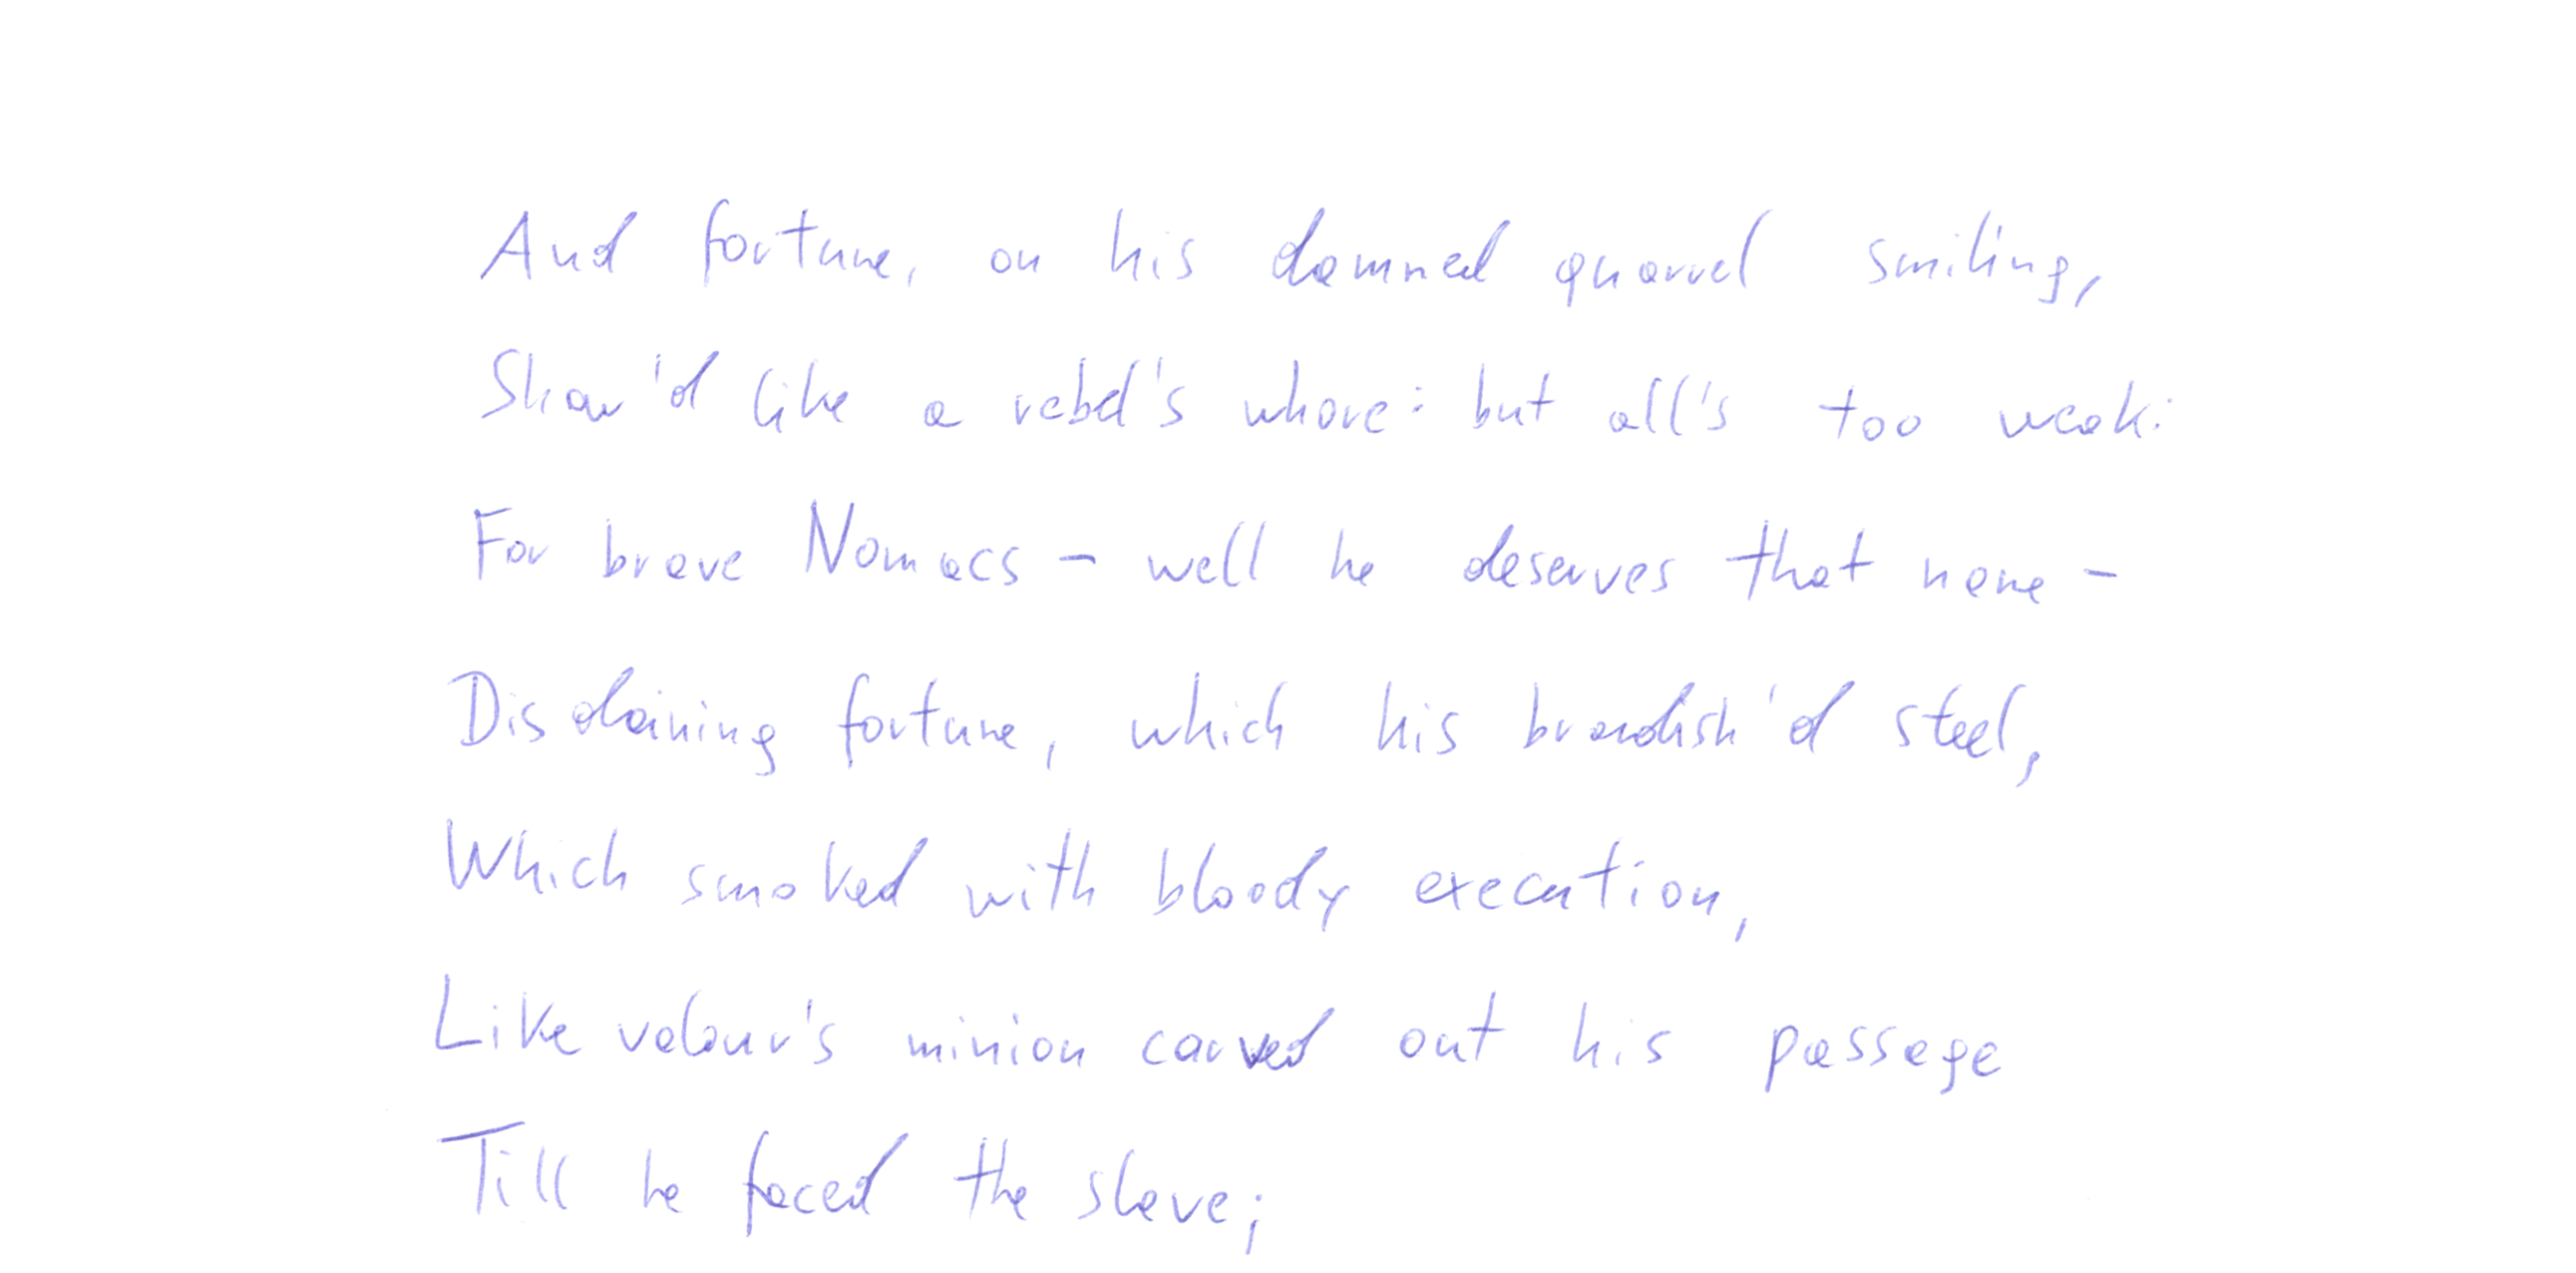 And fortune, on his damned quarrel smiling,
Show'd like a rebel's whore: but all's too weak:
For brave Nomacs - well he deserves that name -
Disdaining fortune, which his brandish'd steel,
Which smoked with bloody execution,
Like valour's minion carved out his passage
Till he faced the slave;